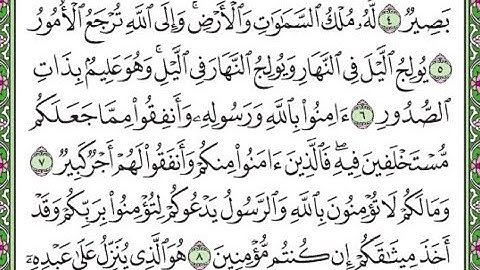 بَصِيرٌ ٤ لَّهُۥ مُلْكُ ٱلسَّمَٰوَٰتِ وَٱلْأَرْضِ ۚ وَإِلَى ٱللَّهِ تُرْجَعُ ٱلْأُمُورُ
٥ يُولِجُ ٱلَّيْلَ فِى ٱلنَّهَارِ وَيُولِجُ ٱلنَّهَارَ فِى ٱلَّيْلِ ۚ وَهُوَ عَلِيمٌۢ بِذَاتِ
ٱلصُّدُورِ ٦ ءَامِنُوا۟ بِٱللَّهِ وَرَسُولِهِۦ وَأَنفِقُوا۟ مِمَّا جَعَلَكُم
مُّسْتَخْلَفِينَ فِيهِ ۖ فَٱلَّذِينَ ءَامَنُوا۟ مِنكُمْ وَأَنفَقُوا۟ لَهُمْ أَجْرٌ كَبِيرٌ ٧
وَمَا لَكُمْ لَا تُؤْمِنُونَ بِٱللَّهِ وَٱلرَّسُولُ يَدْعُوكُمْ لِتُؤْمِنُوا۟ بِرَبِّكُمْ وَقَدْ
أَخَذَ مِيثَٰقَكُمْ إِن كُنتُم مُّؤْمِنِينَ ٨ هُوَ ٱلَّذِى يُنَزِّلُ عَلَىٰ عَبْدِهِۦٓ